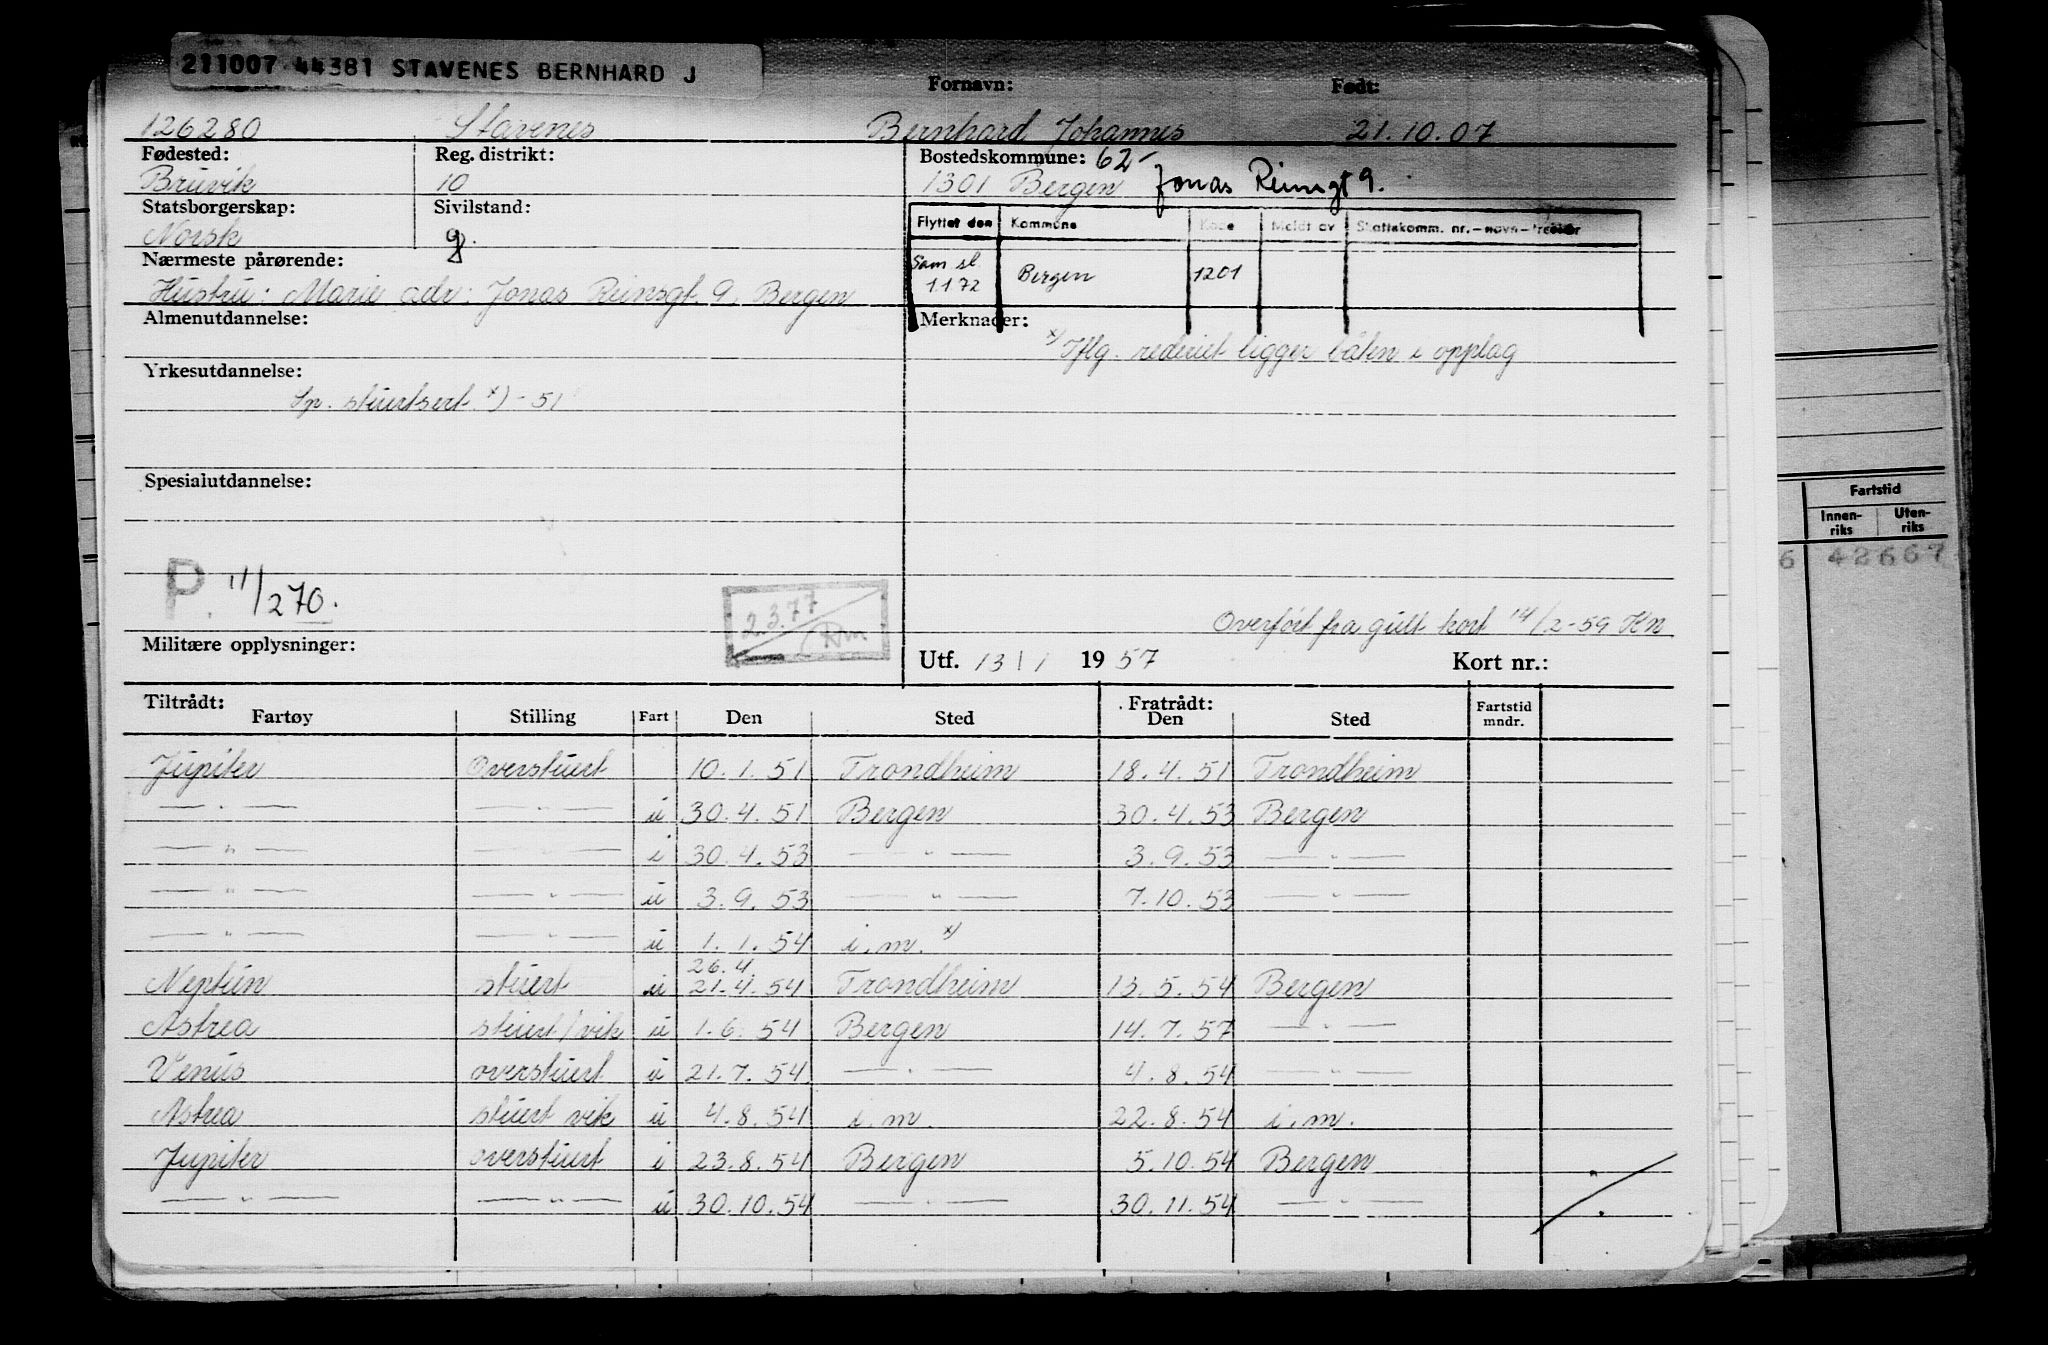 211007 44381 STAVENES BERNHARD J
Fornavn: Født:
126280 Stavenes Bernhard Johannes 21.10.07
Fødested: Reg. distrikt: Bostedskommune: 62-
Bruvik 10 1301 Bergen Jonas Reinsgt 9.
Statsborgerskap: Sivilstand:
Norsk g.
Flyttet den Kommune Kode Meldt av Skattekomm. nr.-navn-
Sam sl. 1 1 72 Bergen 1201
Nærmeste pårørende:
Hustru: Marie adr: Jonas Reinsgt. 9, Bergen
Almenutdannelse: Merknader:
x) Iflg. rederiet ligger båten i opplag
Yrkesutdannelse:
Sp. stuertsert x) - 51
Spesialutdannelse:
P. 11/270.
2.3.77
Overført fra gult kort 14/2-59 Hn
Militære opplysninger: Utf. 13/1 1957 Kort nr.:
Tiltrådt: Fratrådt:
Fartøy Stilling Fart Den Sted Den Sted Fartstid mndr.
Jupiter Overstuert 10.1.51 Trondheim 18.4.51 Trondheim
— " — — " — u 30.4.51 Bergen 30.4.53 Bergen
— " — — " — i 30.4.53 — " — 3.9.53 — " —
— " — — " — u 3.9.53 — " — 7.10.53 — " —
— " — — " — u 1.1.54 i.m. x)
26.4.
Neptun stuert u 21.4.54 Trondheim 13.5.54 Bergen
Astrea stuert/vik u 1.6.54 Bergen 14.7.57 — " —
Venus overstuert u 21.7.54 — " — 4.8.54 — " —
Astrea stuert vik u 4.8.54 i.m. 22.8.54 i.m.
Jupiter overstuert i 23.8.54 Bergen 5.10.54 Bergen
— " — — " — u 30.10.54 — " — 30.11.54 — " —
Fartstid
Innen-riks Uten-riks
6 42607